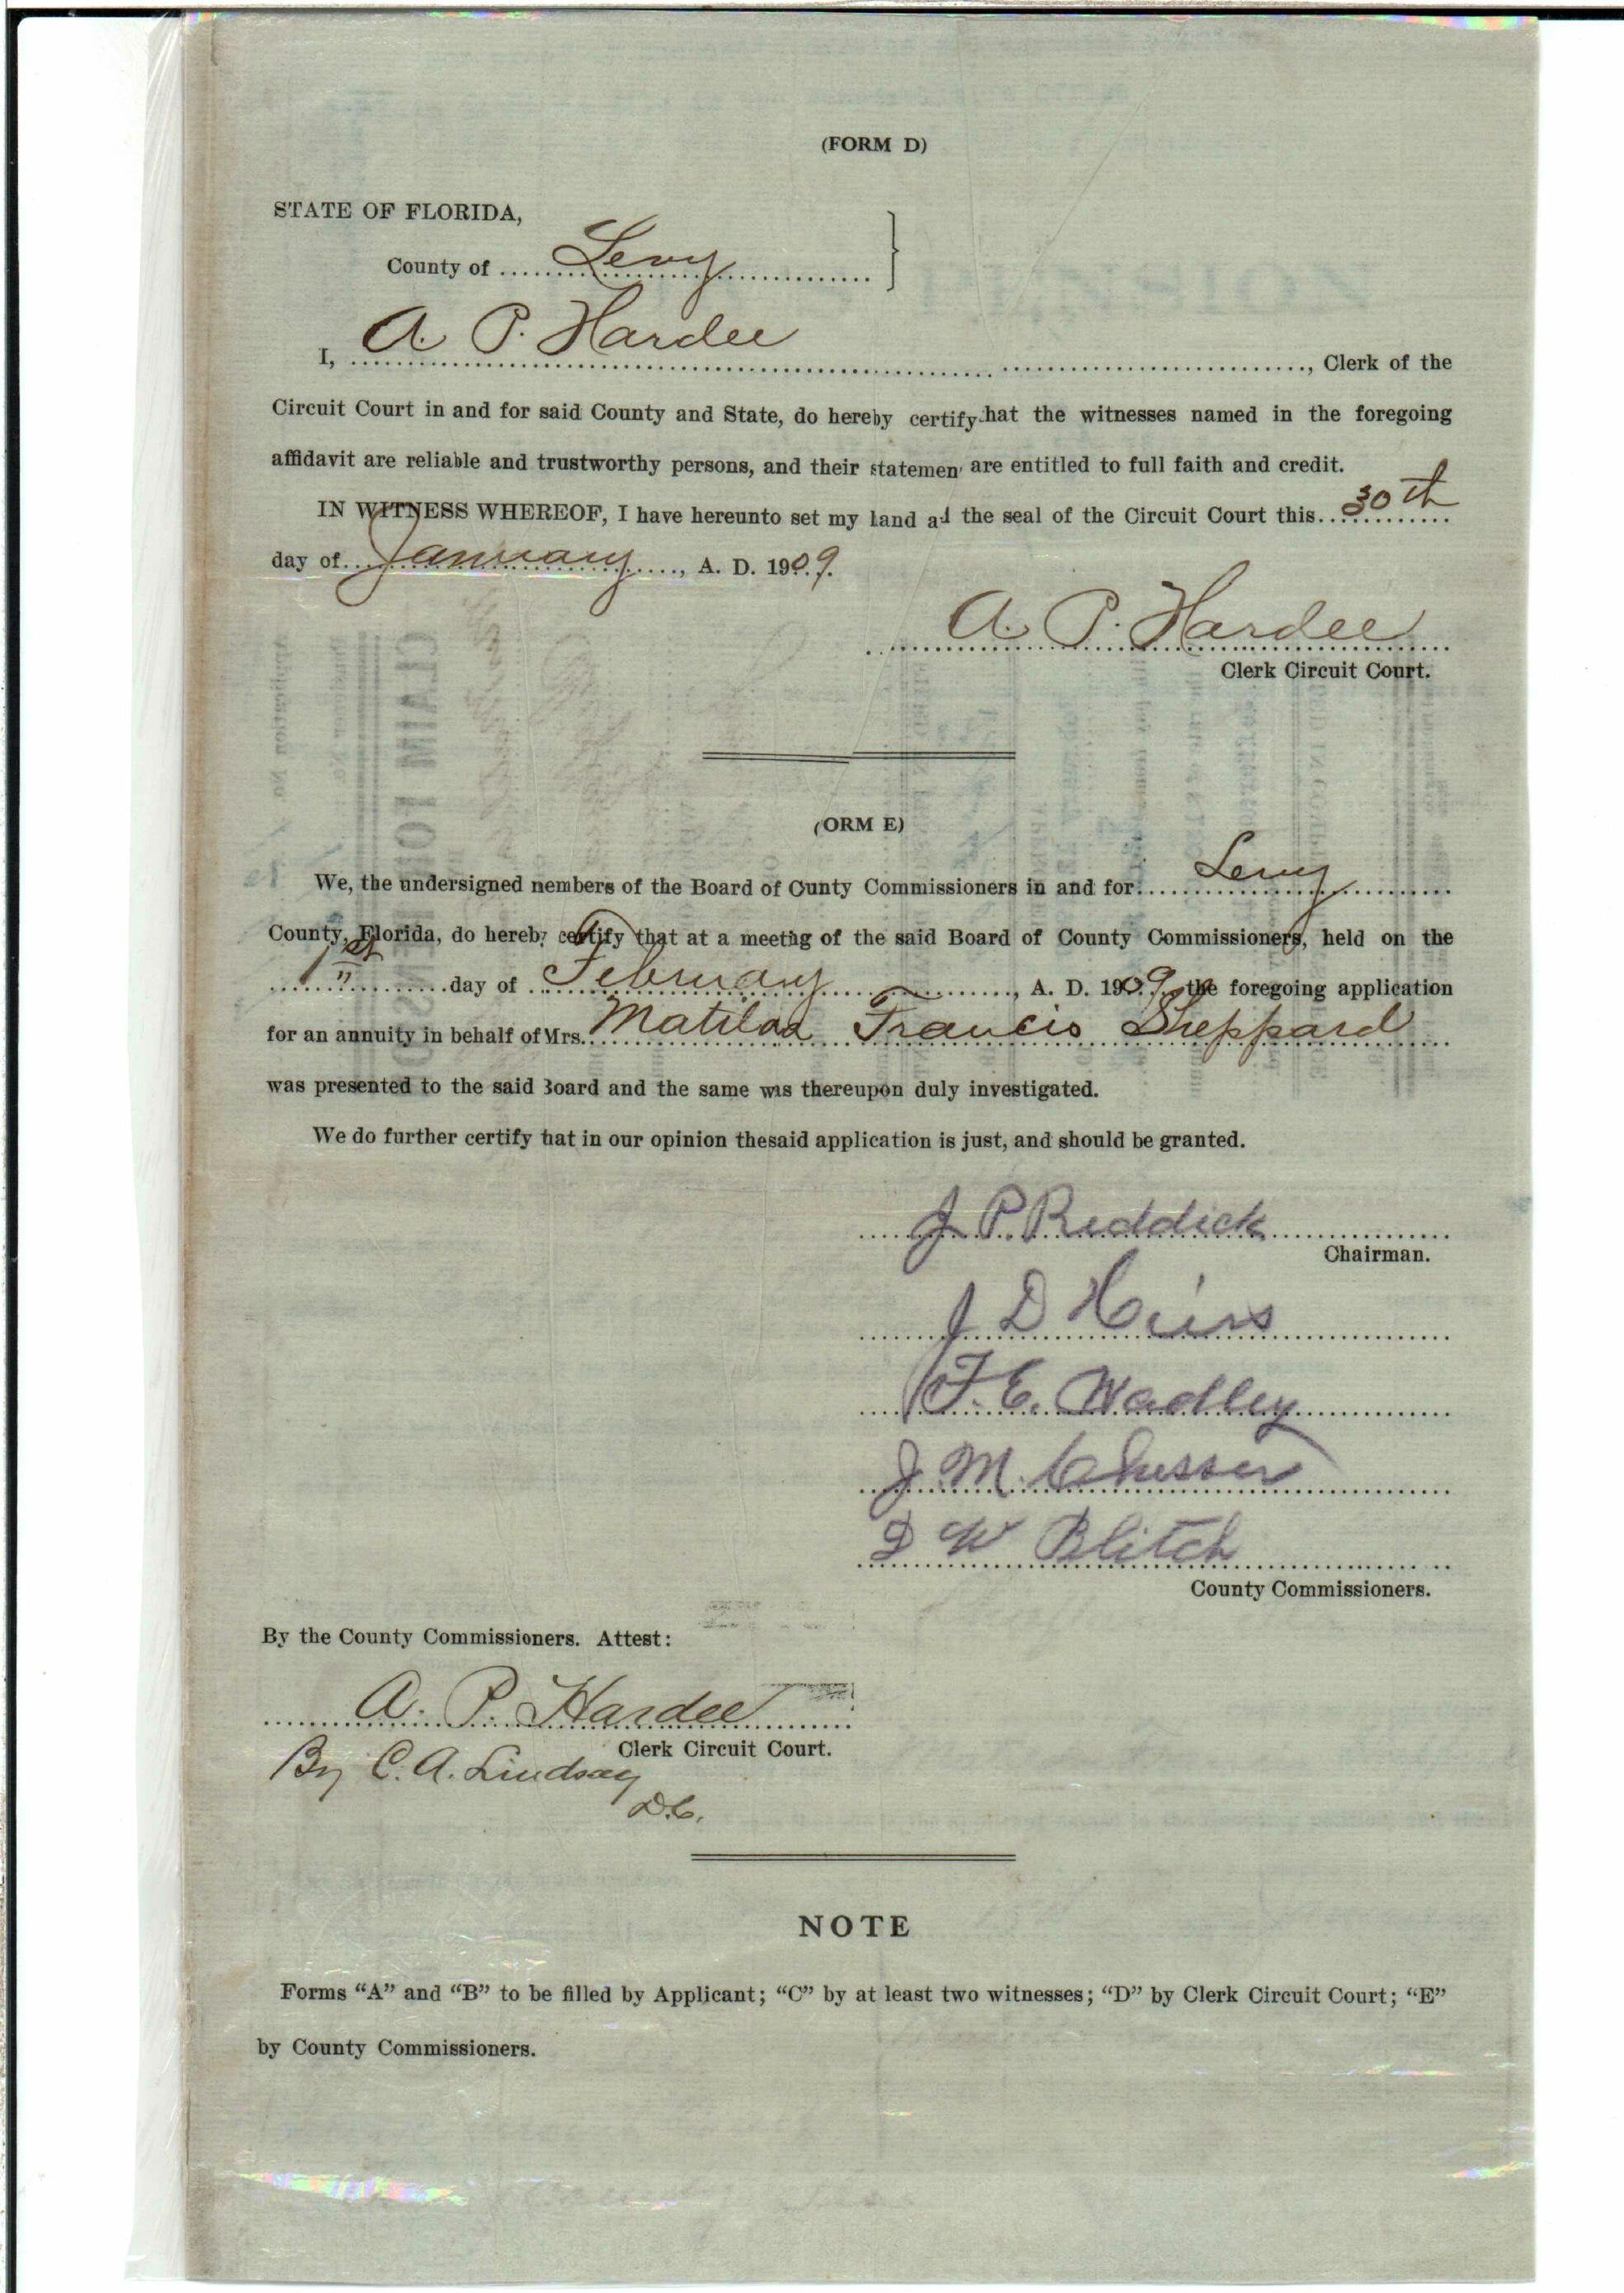 (FORM D)
STATE OF FLORIDA,
County of Levy
I, A. P. Hardee, Clerk of the
Circuit Court in and for said County and State, do hereby certify hat the witnesses named in the foregoing
affidavit are reliable and trustworthy persons, and their statemen are entitled to full faith and credit.
IN WITNESS WHEREOF, I have hereunto set my land ad the seal of the Circuit Court this 30th
day of January, A. D. 1909.
A. P. Hardee
Clerk Circuit Court.
(ORM E)
We, the undersigned nembers of the Board of Cunty Commissioners in and for Levy
County, Florida, do hereby certify that at a meetng of the said Board of County Commissioners, held on the
1st day of February, A. D. 1909, the foregoing application
for an annuity in behalf of Mrs. Matilda Francis Sheppard
was presented to the said Board and the same was thereupon duly investigated.
We do further certify hat in our opinion thesaid application is just, and should be granted.
J P Reddick
Chairman.
J D Hiers
F. E. Wadley
J. M. Chesser
D W Blitch
County Commissioners.
By the County Commissioners. Attest:
A. P. Hardee
Clerk Circuit Court.
By C. A. Lindsay
D.C.
NOTE
Forms “A” and “B” to be filled by Applicant; “C” by at least two witnesses; “D” by Clerk Circuit Court; “E”
by County Commissioners.